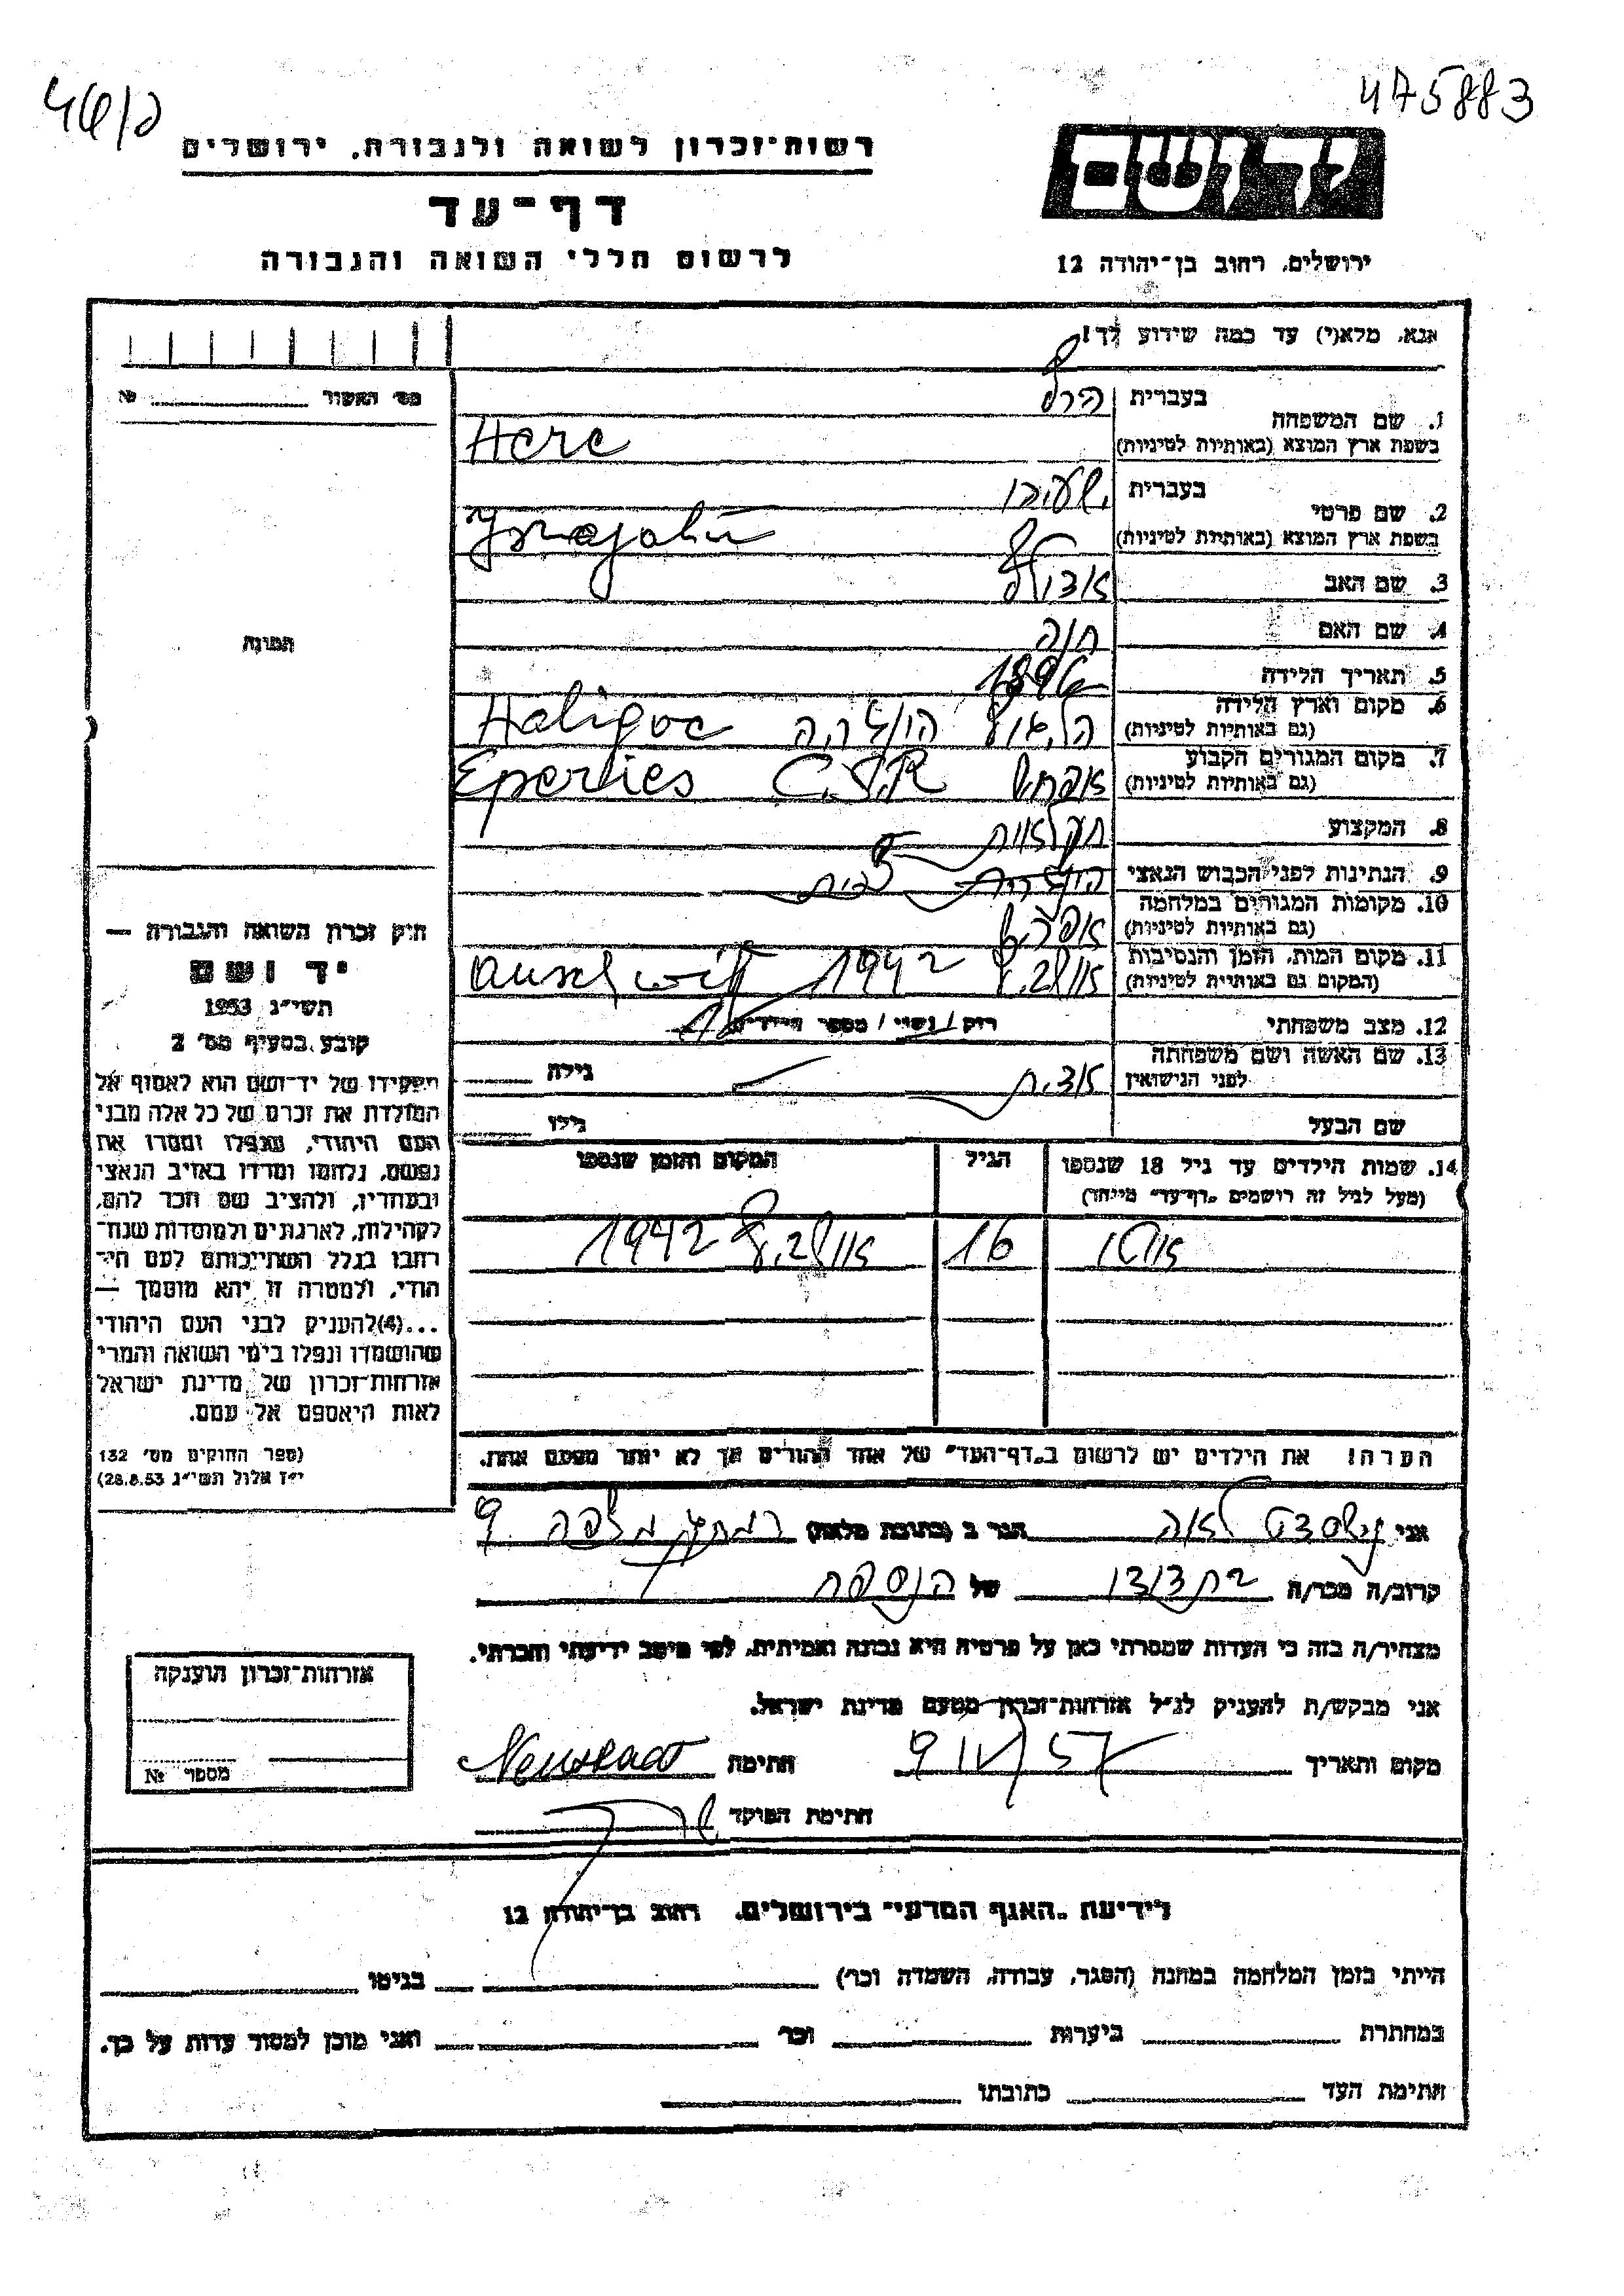 46/ה
475883
רשות-זכרון לשואה ולגבורה, ירושלים
דף-עד
לרשום חללי השואה והגבורה
יד ושם
ירושלים, רחוב בן-יהודה 12
אנא, מלא(י) עד כמה שידוע לך!
מס' האשור № 
1. שם המשפחה
בעברית
בשפת ארץ המוצא (באותיות לטיניות) Herc
2. שם פרטי
בעברית ישעיהו
בשפת ארץ המוצא (באותיות לטיניות)
3. שם האב אדולף
4. שם האם חוה
5. תאריך הלידה 1896
6. מקום וארץ הלידה
(גם באותיות לטיניות) הונגריה Haligoc
7. מקום המגורים הקבוע
(גם באותיות לטיניות) C.S.R Eperlies
8. המקצוע חקלאות
9. הנתינות לפני הכבוש הנאצי
10. מקומות המגורים במלחמה
(גם באותיות לטיניות)
11. מקום המות, הזמן והנסיבות
(המקום גם באותיות לטיניות) 1942 Auschwitz
12. מצב משפחתי רווק / נשוי / מספר הילדים
13. שם האשה ושם משפחתה
לפני הנישואין אדית גילה
שם הבעל גילו
14. שמות הילדים עד גיל 18 שנספו
(מעל לגיל זה רושמים "דף-עד" מיוחד)
הגיל
המקום והזמן שנספו
16 1942
הערה! את הילדים יש לרשום ב"דף-העד" של אחד ההורים אך לא יותר מפעם אחת.
תמונה
חוק זכרון השואה והגבורה —
יד ושם
תשי"ג 1953
קובע בסעיף מס' 2
תפקידו של יד-ושם הוא לאסוף אל
המולדת את זכרם של כל אלה מבני
העם היהודי, שנפלו ומסרו את
נפשם, נלחמו ומרדו באויב הנאצי
ובעוזריו, ולהציב שם וזכר להם,
לקהילות, לארגונים ולמוסדות שנח-
רבו בגלל השתייכותם לעם הי-
הודי, ולמטרה זו יהא מוסמך —
...(4) להעניק לבני העם היהודי
שהושמדו ונפלו בימי השואה והמרי
אזרחות-זכרון של מדינת ישראל
לאות היאספם אל עמם.
(ספר החוקים מס' 132
י"ז אלול תשי"ג 28.8.53)
אני לאה הגר ב (כתובת מלאה) 9
קרוב/ה מכר/ה בת דודו של הנספה
מצהיר/ה בזה כי העדות שמסרתי כאן על פרטיה היא נכונה ואמיתית, לפי מיטב ידיעתי והכרתי.
אני מבקש/ת להעניק לנ"ל אזרחות-זכרון מטעם מדינת ישראל.
מקום ותאריך חתימה
חתימת הפוקד
אזרחות-זכרון הוענקה
מספר №
לידיעת "האגף המדעי" בירושלים, רחוב בן-יהודה 12
הייתי בזמן המלחמה במחנה (הסגר, עבודה, השמדה וכו') בגיטו
במחתרת ביערות וכו' ואני מוכן למסור עדות על כך.
חתימת העד כתובתו